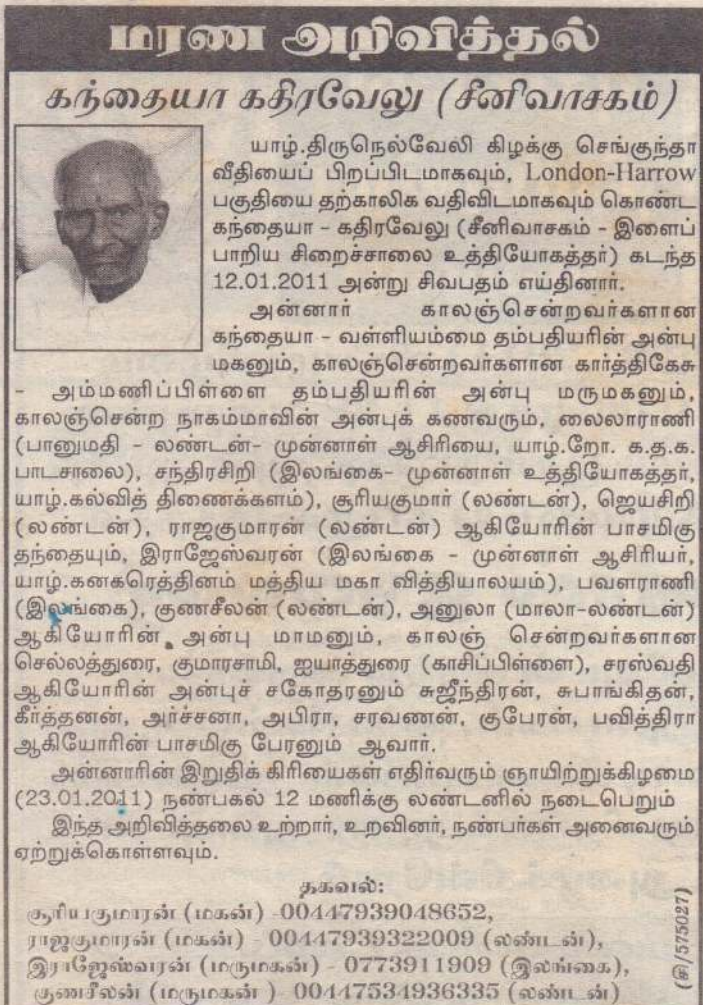 மரண அறிவித்தல்
கந்தையா கதிரவேலு (சீனிவாசகம்)
யாழ்.திருநெல்வேலி கிழக்கு செங்குந்தா
வீதியைப் பிறப்பிடமாகவும், London-Harrow
பகுதியை தற்காலிக வதிவிடமாகவும் கொண்ட
கந்தையா - கதிரவேலு (சீனிவாசகம் - இளைப்
பாறிய சிறைச்சாலை உத்தியோகத்தர்) கடந்த
12.01.2011 அன்று சிவபதம் எய்தினார்.
அன்னார் காலஞ்சென்றவர்களான
கந்தையா - வள்ளியம்மை தம்பதியரின் அன்பு
மகனும், காலஞ்சென்றவர்களான கார்த்திகேசு
- அம்மணிப்பிள்ளை தம்பதியரின் அன்பு மருமகனும்,
காலஞ்சென்ற நாகம்மாவின் அன்புக் கணவரும், லைலாராணி
(பானுமதி - லண்டன்- முன்னாள் ஆசிரியை, யாழ்.றோ. க.த.க.
பாடசாலை), சந்திரசிறி (இலங்கை- முன்னாள் உத்தியோகத்தர்,
யாழ்.கல்வித் திணைக்களம்), சூரியகுமார் (லண்டன்), ஜெயசிறி
(லண்டன்), ராஜகுமாரன் (லண்டன்) ஆகியோரின் பாசமிகு
தந்தையும், இராஜேஸ்வரன் (இலங்கை - முன்னாள் ஆசிரியர்,
யாழ்.கனகரெத்தினம் மத்திய மகா வித்தியாலயம்), பவளராணி
(இலங்கை), குணசீலன் (லண்டன்), அனுலா (மாலா-லண்டன்)
ஆகியோரின் அன்பு மாமனும், காலஞ் சென்றவர்களான
செல்லத்துரை, குமாரசாமி, ஐயாத்துரை (காசிப்பிள்ளை), சரஸ்வதி
ஆகியோரின் அன்புச் சகோதரனும் சுஜீந்திரன், சுபாங்கிதன்,
கீர்த்தனன், அர்ச்சனா, அபிரா, சரவணன், குபேரன், பவித்திரா
ஆகியோரின் பாசமிகு பேரனும் ஆவார்.
அன்னாரின் இறுதிக் கிரியைகள் எதிர்வரும் ஞாயிற்றுக்கிழமை
(23.01.2011) நண்பகல் 12 மணிக்கு லண்டனில் நடைபெறும்
இந்த அறிவித்தலை உற்றார், உறவினர், நண்பர்கள் அனைவரும்
ஏற்றுக்கொள்ளவும்.
தகவல்:
சூரியகுமாரன் (மகன்) -00447939048652,
ராஜகுமாரன் (மகன்) - 00447939322009 (லண்டன்),
இராஜேஸ்வரன் (மருமகன்) - 0773911909 (இலங்கை),
குணசீலன் (மருமகன் ) - 00447534936335 (லண்டன்)
(இ/575027)